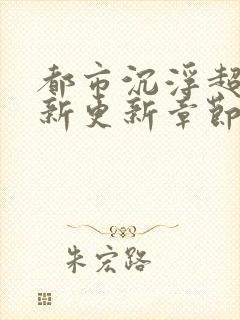 都市沉浮超
新更新章節
朱宏路